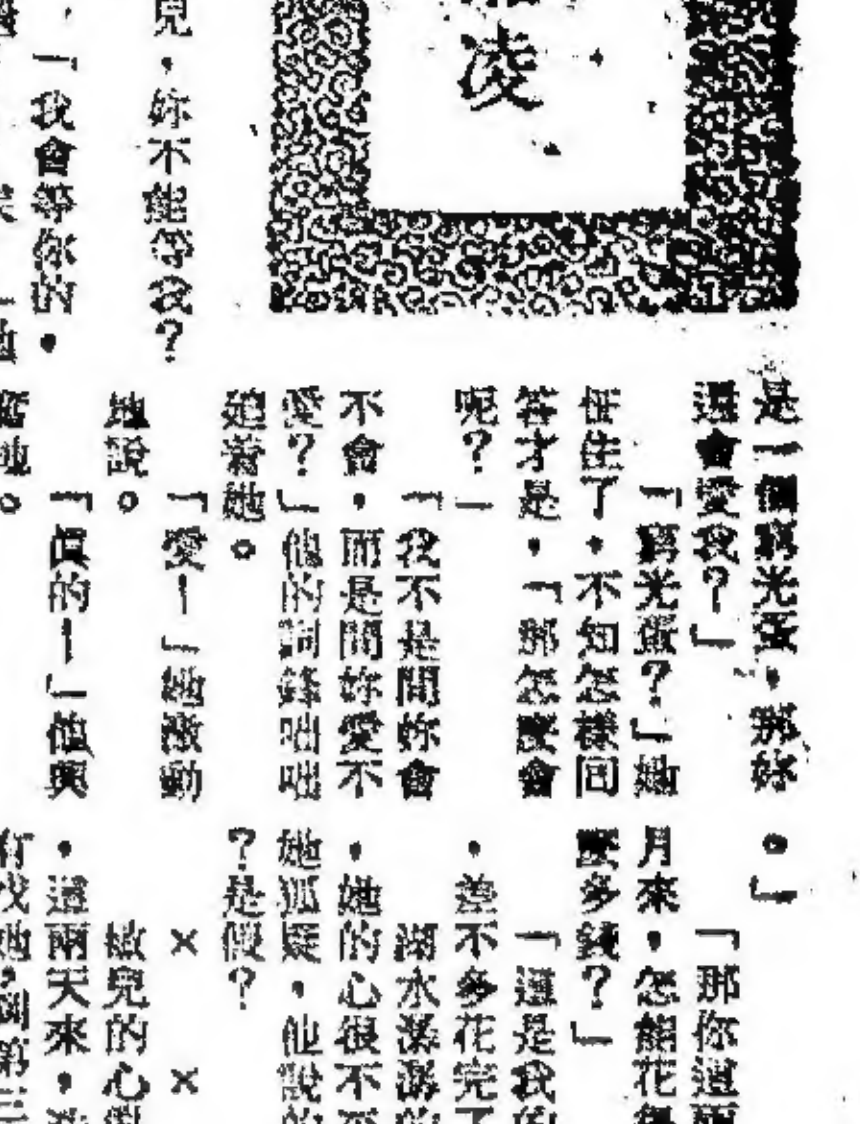 凌
兒，妳不能等我？
，「我會等你的，
是一個窮光蛋，那妳
還會愛我？」
「窮光蛋？」她
怔住了，不知怎樣回
答才是，「那怎麼會
呢？」
「我不是問妳會
不會，而是問妳愛不
愛？」他的詞鋒咄咄
着她。
「愛！」她激動
地說。
「真的！」他興
她。
。」
「那你這兩
月來，怎能花
麼多錢？」
「這是我的
，差不多花完了
湖水潺潺的
，她的心很不
她狐疑，他說的
？是假？
× ×
兒的心
，這兩天來，
有找她，到第三